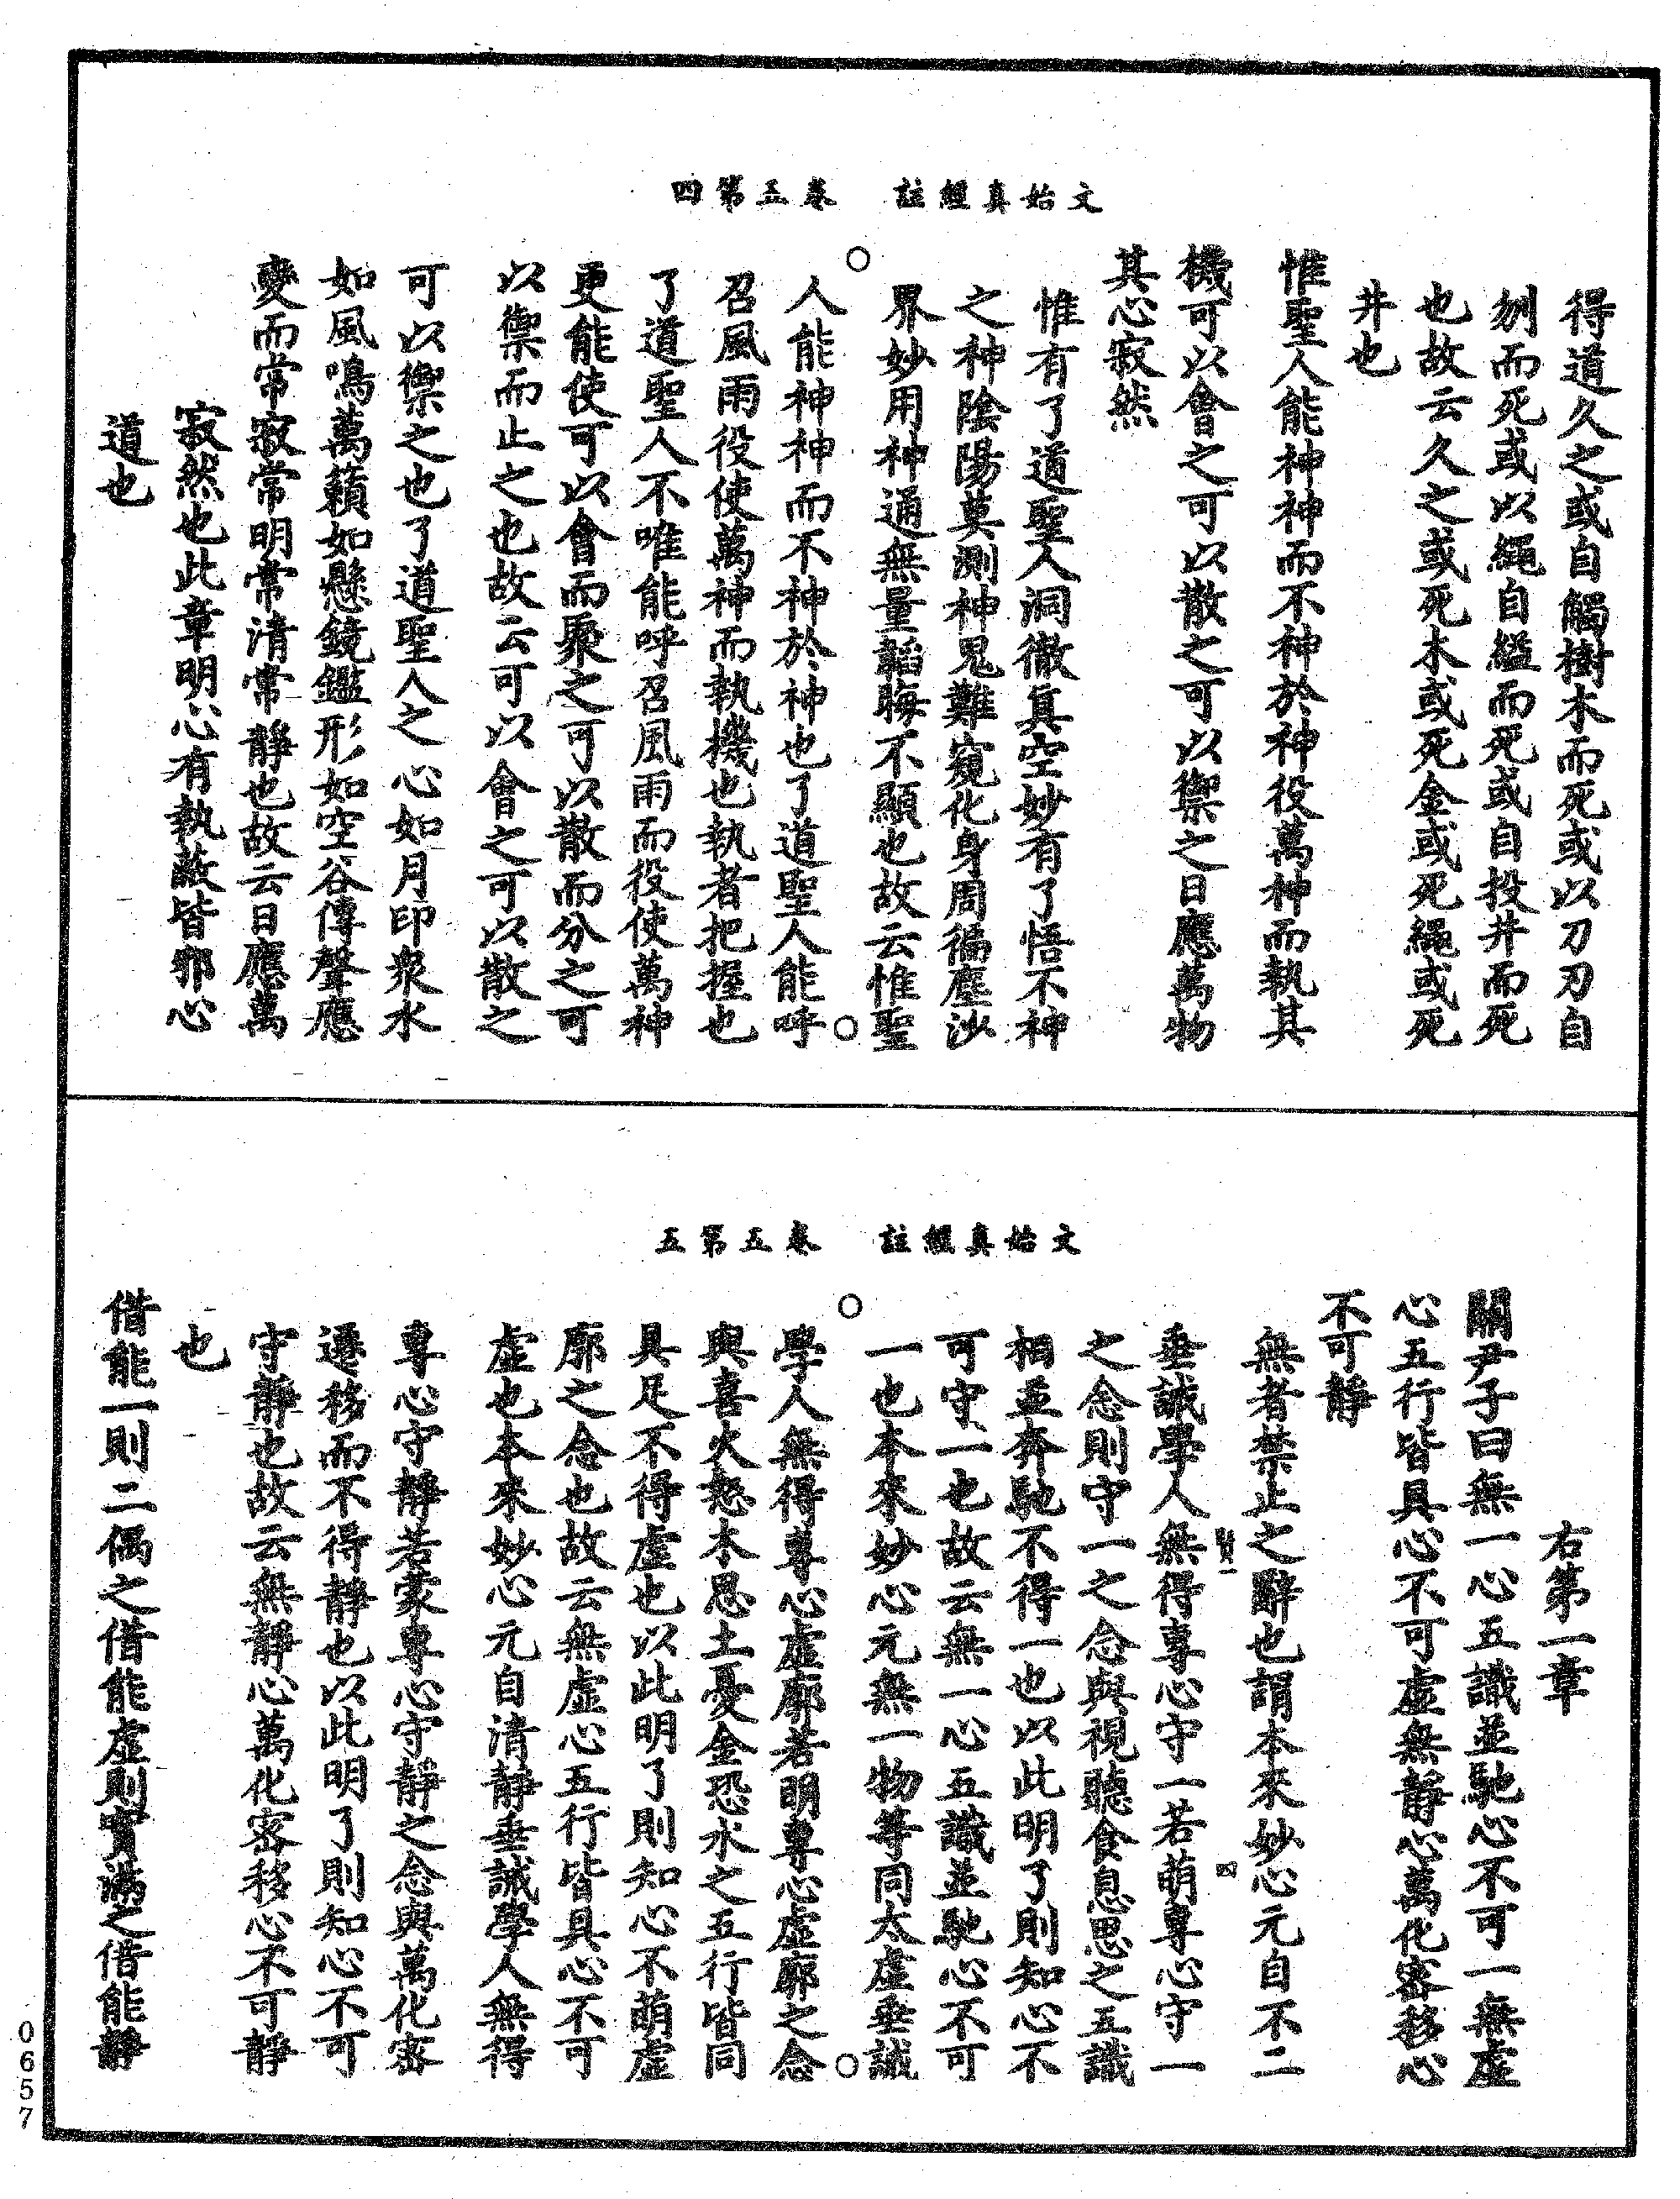 文始真經註　卷五第四
得道久之或自觸樹木而死或以刀刃自
刎而死或以繩自縊而死或自投井而死
也故云久之或死木或死金或死繩或死
井也
惟聖人能神神而不神於神役萬神而執其
機可以會之可以散之可以禦之日應萬物
其心寂然
惟有了道聖人洞徹真空妙有了悟不神
之神陰陽莫測神鬼難窺化身周徧塵沙
界妙用神通無量韜晦不顯也故云惟聖
人能神神而不神於神也了道聖人能呼
召風雨役使萬神而執機也執者把握也
了道聖人不唯能呼召風雨而役使萬神
更能使可以會而聚之可以散而分之可
以禦而止之也故云可以會之可以散之
可以禦之也了道聖人之心如月印衆水
如風鳴萬籟如懸鏡鑑形如空谷傳聲應
變而常寂常明常清常靜也故云日應萬
寂然也此章明心有執蔽皆邪心
道也
文始真經註　卷五第五
右第一章
關尹子曰無一心五識並馳心不可一無虛
心五行皆具心不可虛無靜心萬化密移心
不可靜
無者禁止之辭也謂本來妙心元自不二
垂誡學人無得專心守一若萌專心守一
賢一
四
之念則守一之念與視聽食息思之五識
相並奔馳不得一也以此明了則知心不
可守一也故云無一心五識並馳心不可
一也本來妙心元無一物等同太虛垂誡
學人無得專心虛廓若明專心虛廓之念
與喜火怒木思土憂金恐水之五行皆同
具足不得虛也以此明了則知心不萌虛
廓之念也故云無虛心五行皆具心不可
虛也本來妙心元自清靜垂誡學人無得
專心守靜若蒙專心守靜之念與萬化密
遷移而不得靜也以此明了則知心不可
守靜也故云無靜心萬化密移心不可靜
也
借能一則二偶之借能虛則實滿之借能靜
0657